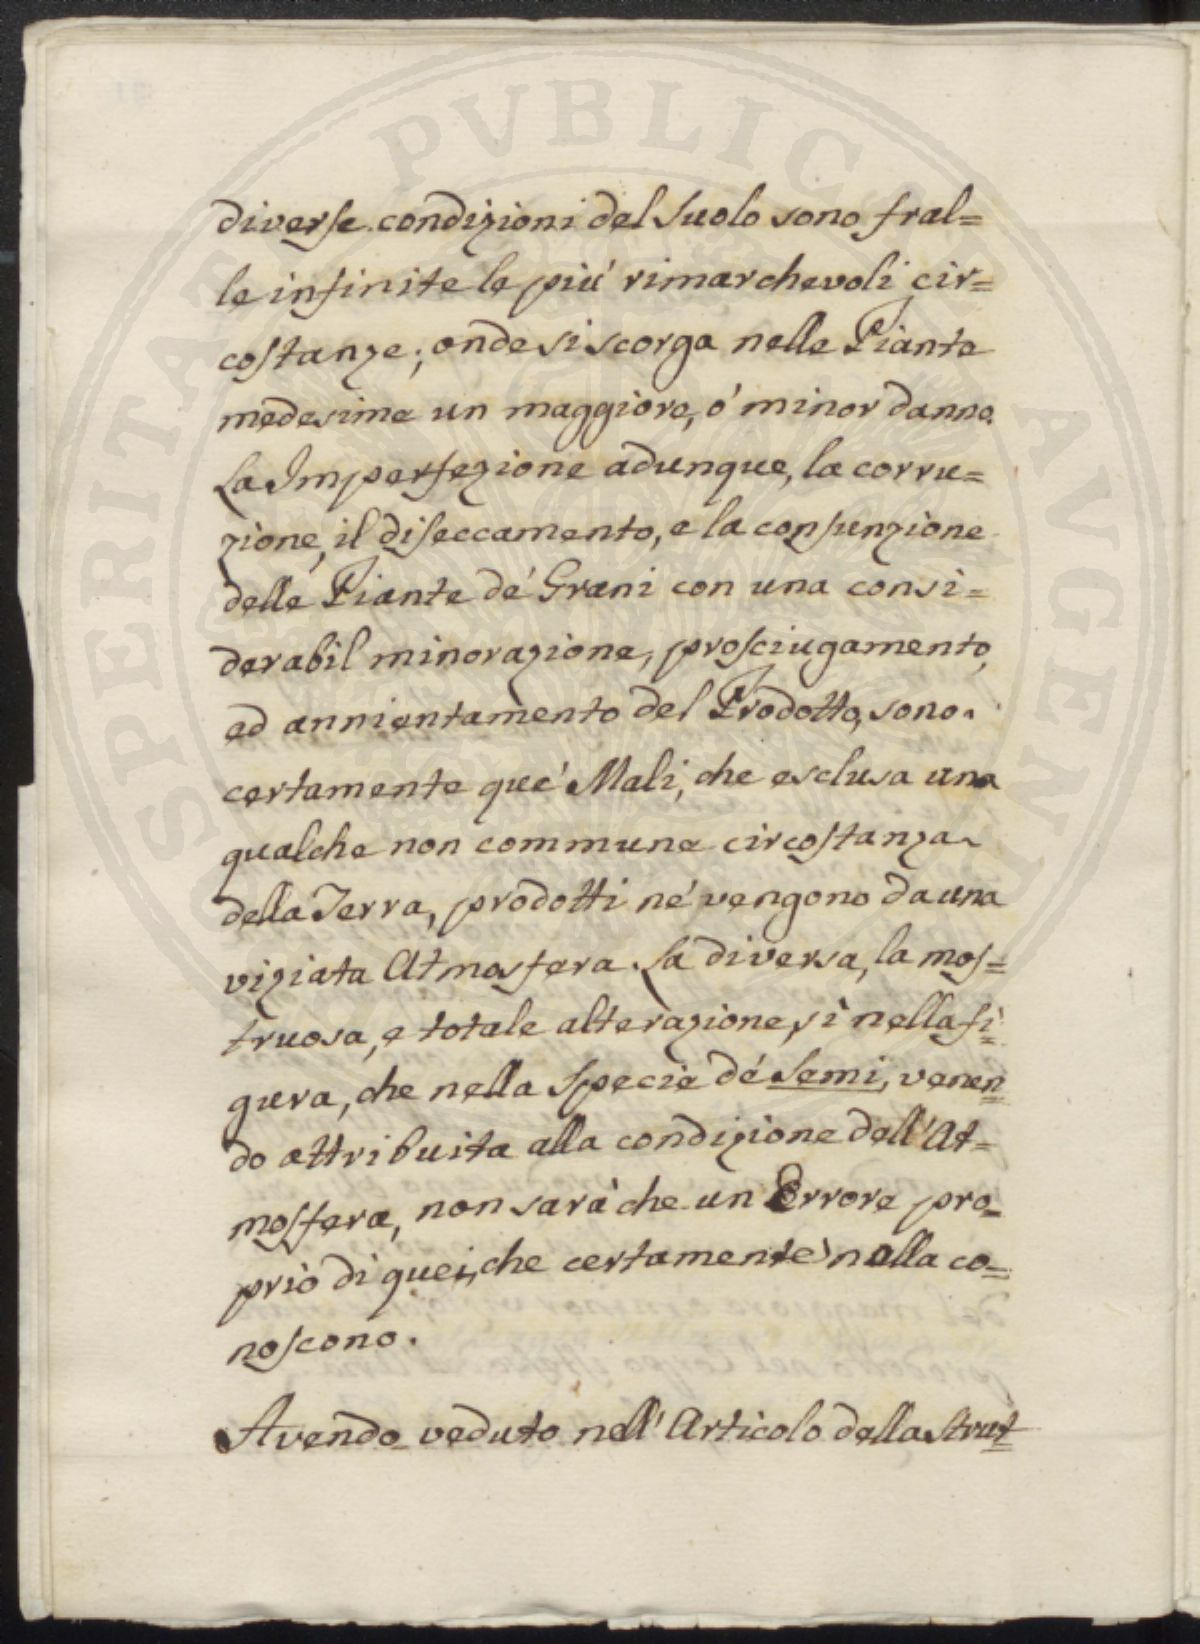 PROSPERITATI PVBLICAE AVGENDAE
diverse condizioni del Suolo sono fral=
le infinite le più rimarchevoli cir=
costanze; onde si scorga nelle Piante
medesime un maggiore, ó minor danno.
La Imperfezione adunque, la corru=
zione, il diseccamento, e la consunzione
delle Piante dé Grani con una consi=
derabil minorazione, prosciugamento,
ed annientamento del Prodotto, sono
certamente qué Mali, che esclusa una
qualche non commune circostanza
della Terra, prodotti né vengono da una
viziata Atmosfera. La diversa, la mos=
truosa, e totale alterazione, sì nella fi=
gura, che nella Specie dé Semi, venen=
do attribuita alla condizione dell'At=
mosfera, non sarà che un Errore pro=
prio di quei, che certamente nulla co=
noscono.
Avendo veduto nell'Articolo della Strut=